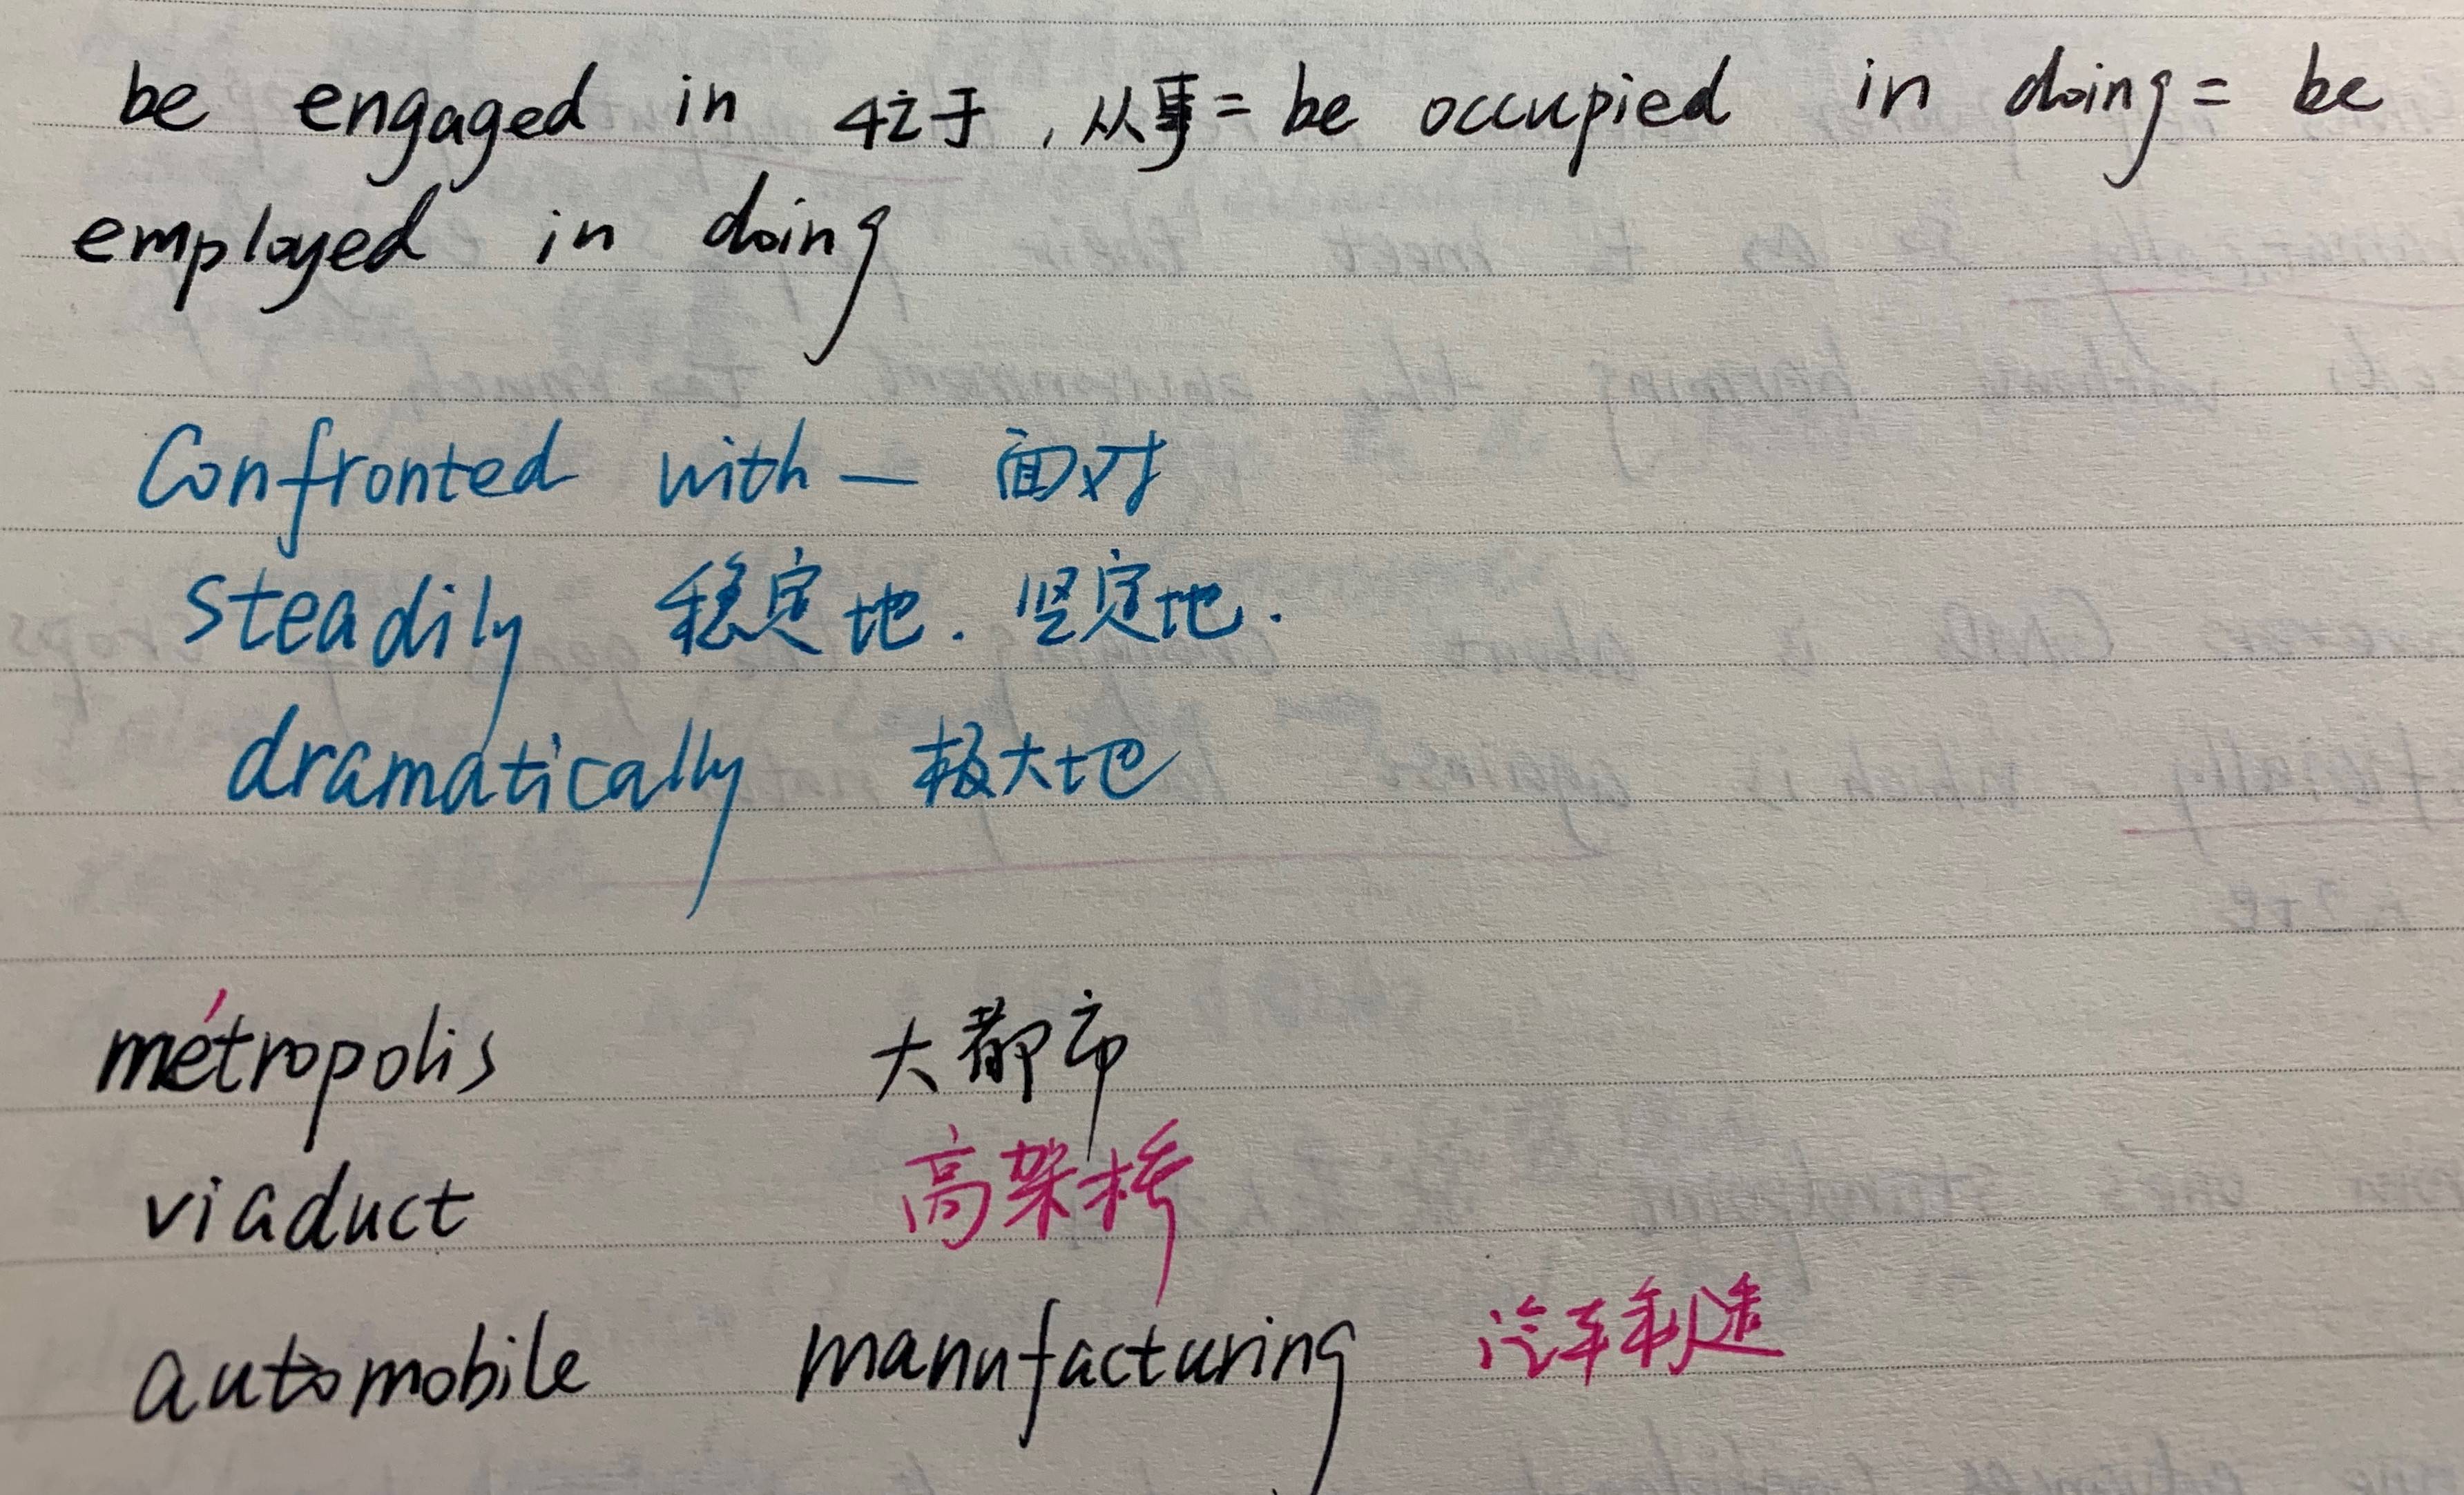 be engaged in 忙于,从事 = be occupied in doing = be
employed in doing
Confronted with — 面对
steadily 稳定地. 坚定地.
dramatically 极大地
métropolis 大都市
viaduct 高架桥
automobile manufacturing 汽车制造